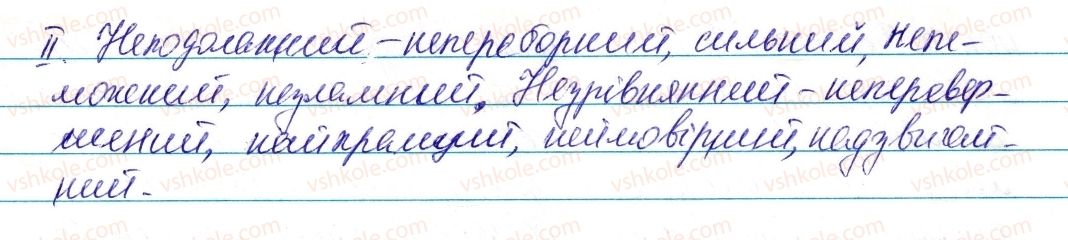 II. Неподоланний – непереборний, сильний, непе-
можний, незламний. Незрівнянний – неперевер-
шений, найкращий, неймовірний, надзвичай-
ний.